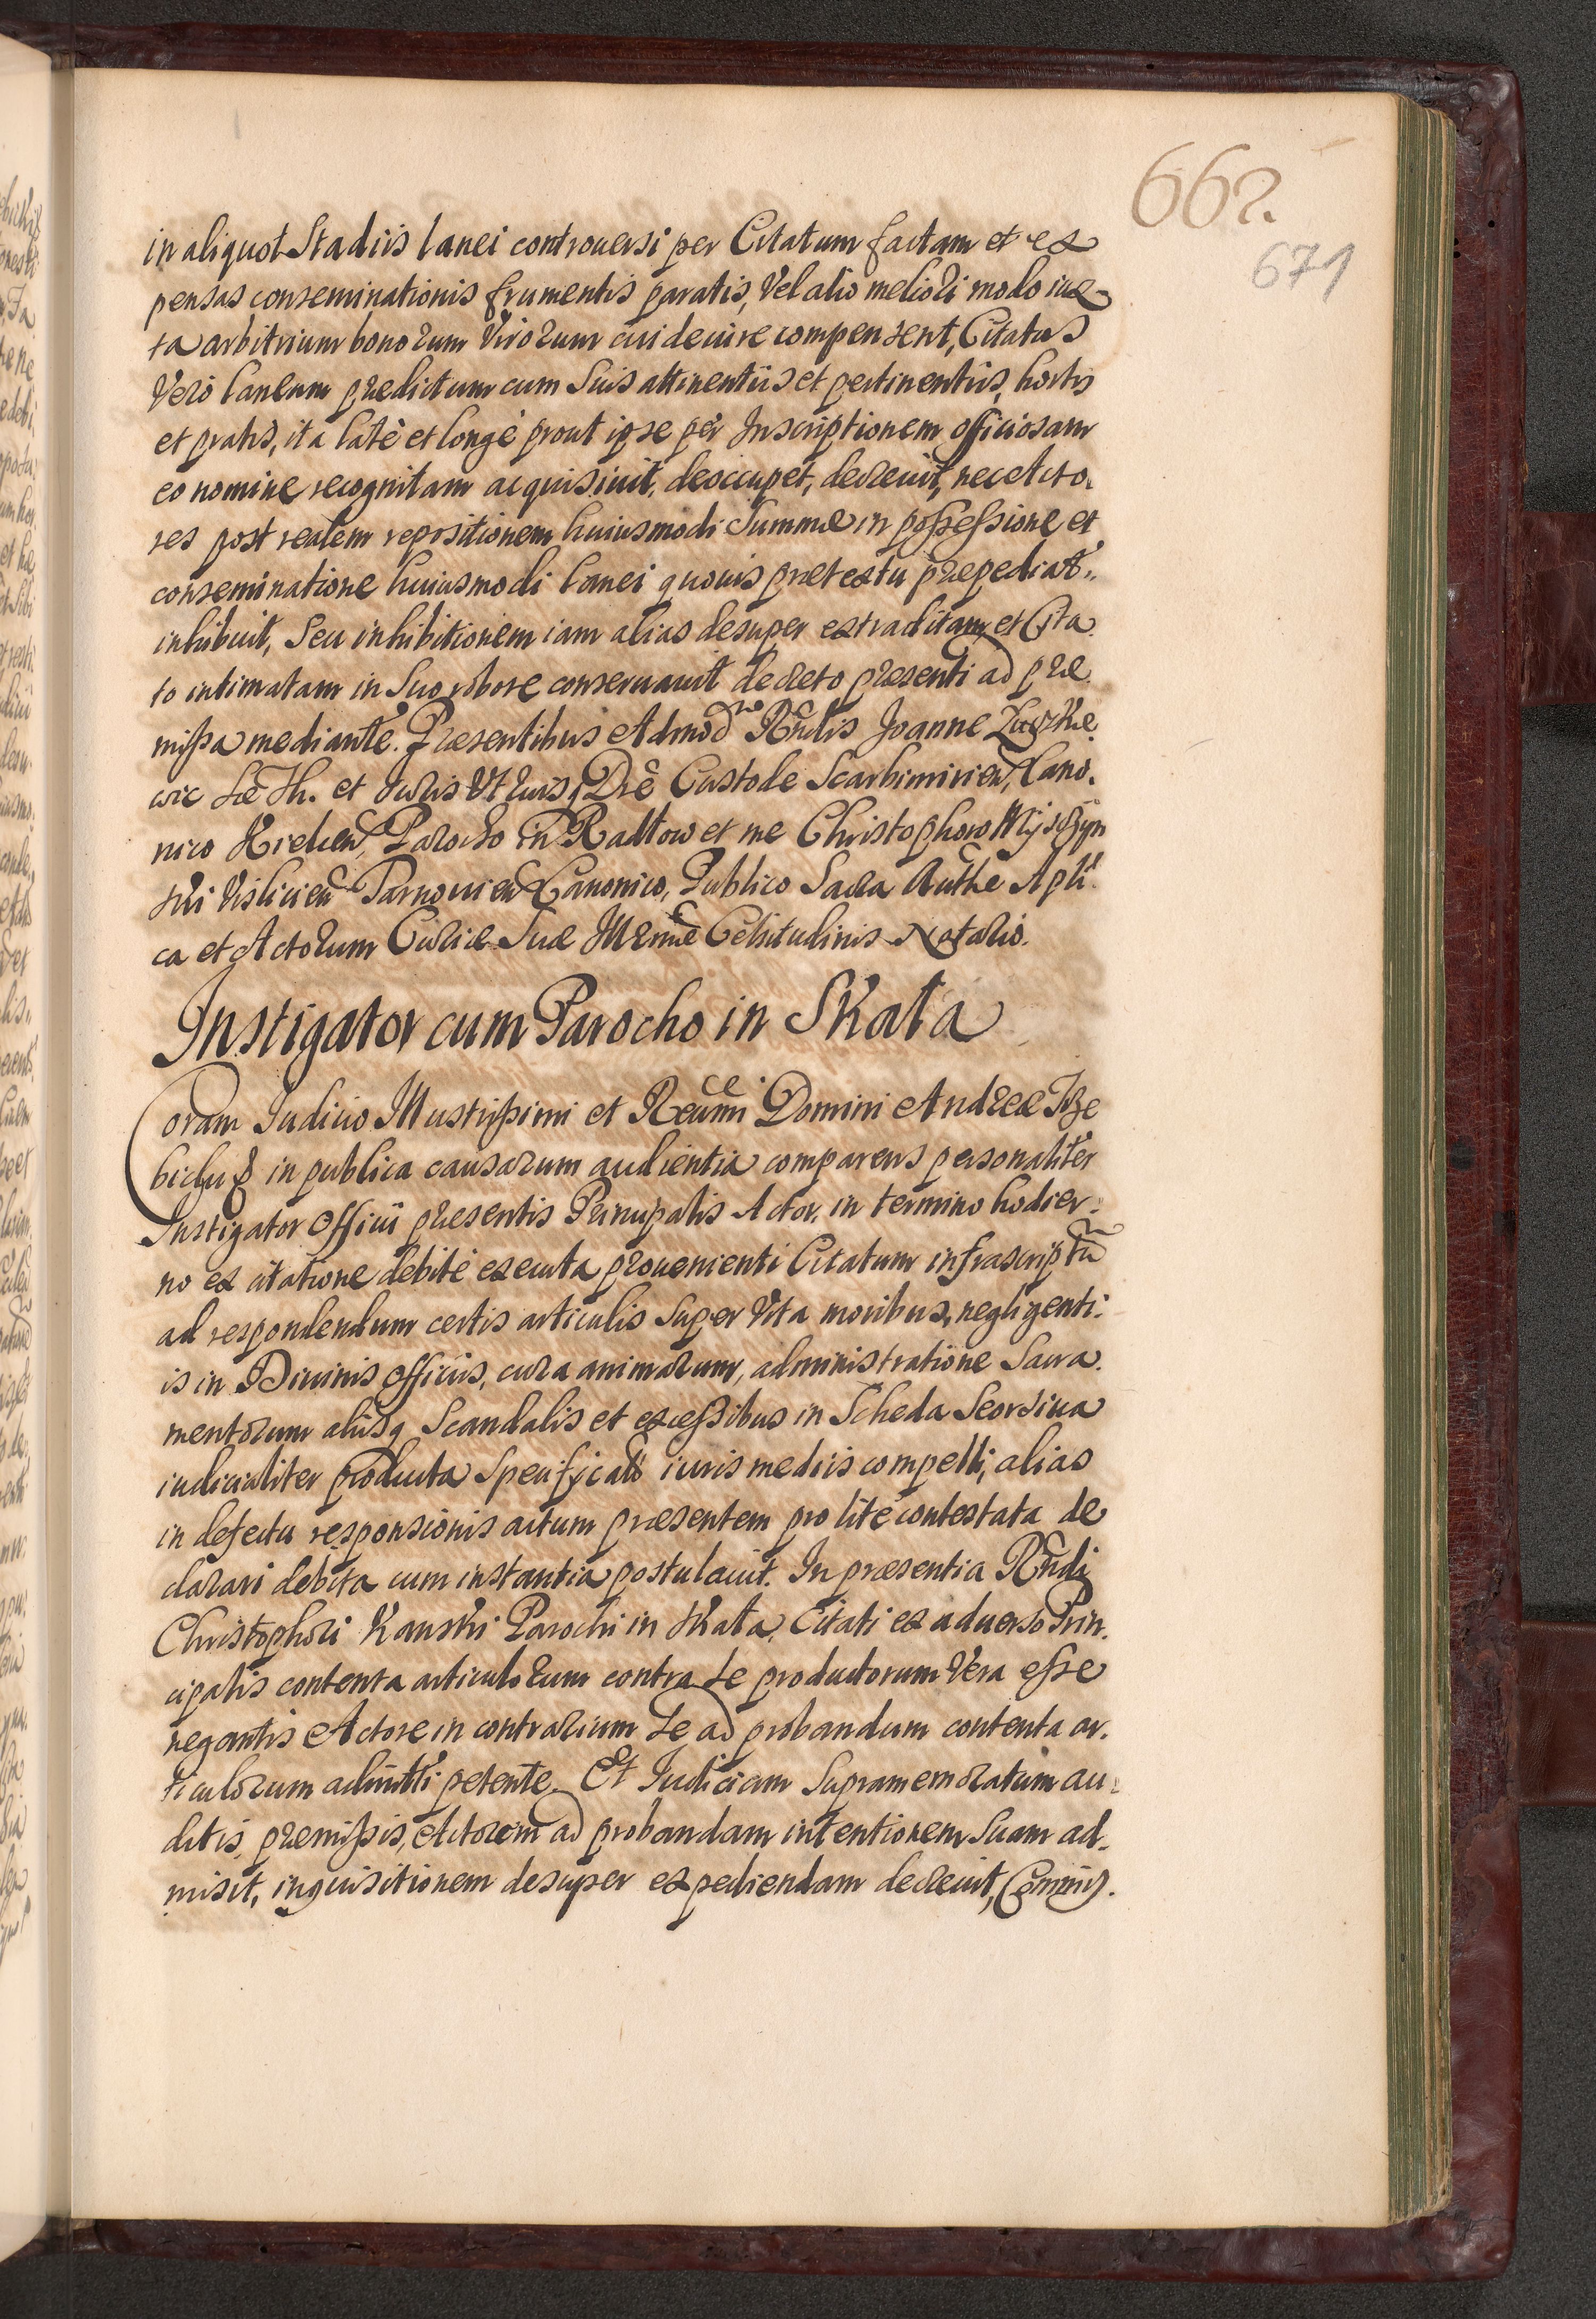 662.
671
in aliquot Stadiis lanei controuersi per Citatum factam et ex
pensas conseminationis frumentis paratis, Vel alio meliori modo iux
ta arbitrium bonorum Virorum eidem compensent, Citatus
Vero laneum prædictum cum Suis attinentiis et pertinentiis, hortis
et pratis, ita latè et longè prout ipse per Inscriptionem officiosam
eo nomine recognitam acquisiuit, desoccupet, decreuit, nec Acto.
res post realem repositionem huiusmodi Summæ in possessione et
conseminatione huiusmodi lanei quouis prætextu præpediat..
inhibuit, Seu inhibitionem iam alias desuper extraditam et Cita.
to intimatam in Suo robore conseruauit decreto præsenti ad præ.
missa mediante. Præsentibus Admod Rndis Joanne
wic Sæ Th. et Iuris Vtriusq Dre Custode Scarbimirien, Cano.
nico Kielcen, Parocho in Radłow et me Christophoro
ski Vislicien Tarnouien Canonico, Publico Sacra Authe Apli
ca et Actorum Curiæ Suæ Illrmæ Celsitudinis Notario.
Instigator cum Parocho in Skała
Coram Iudicio Illustrissimi et Reumi Domini Andreæ Trze
bicky in publica causarum audientia comparens personaliter
Instigator Officii præsentis Principalis Actor, in termino hodier:
no ex citatione debitè executa prouenienti Citatum infrascriptu
ad respondendum certis articulis Super Vita moribus, negligenti:
is in Diuinis Officiis, cura animarum, administratione Sacra.
mentorum aliisq Scandalis et excessibus in Scheda Seorsiua
iudicialiter producta Specificatis iuris mediis compelli, alias
in defectu responsionis actum præsentem pro lite contestata de
clarari debita cum instantia postulauit. In præsentia Rndi
Christophori Kanski Parochi in Skała, Citati ex aduerso Prin.
cipalis contenta articulorum contra Se productorum Vera esse
negantis Actore in contrarium Se ad probandum contenta ar.
ticulorum admitti petente. Et Iudicium Supramemoratum au:
ditis præmissis, Actorem ad probandam intentionem Suam ad.
misit, inquisitionem desuper expediendam decreuit,